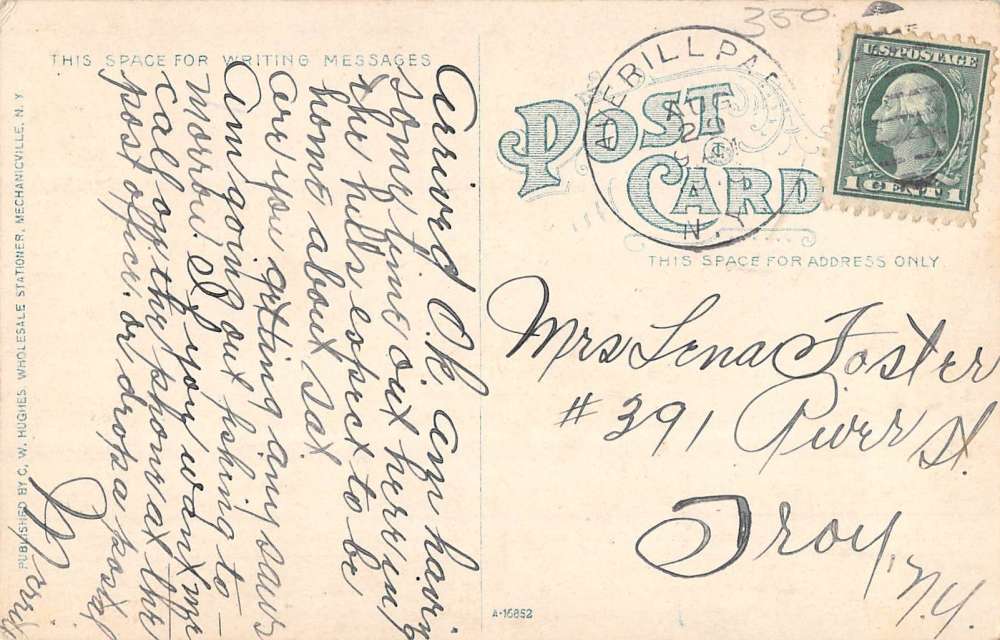 THIS SPACE FOR WRITING MESSAGES
Arrived O.K. am having
some time out here in
the hills, expect to be
home about Sat
are you getting any saws
Am going out fishing to-
morrow. If you want me
call on the phone at the
post office. or drop a postal
PUBLISHED BY C. W. HUGHES, WHOLESALE STATIONER, MECHANICVILLE, N. Y.
350
AVERILL PARK
AUG
29
N.Y.
U.S. POSTAGE
1 CENT 1
POST
CARD
THIS SPACE FOR ADDRESS ONLY
Mrs Lena Foster
# 391 River St.
Troy,
N.Y.
A-16852